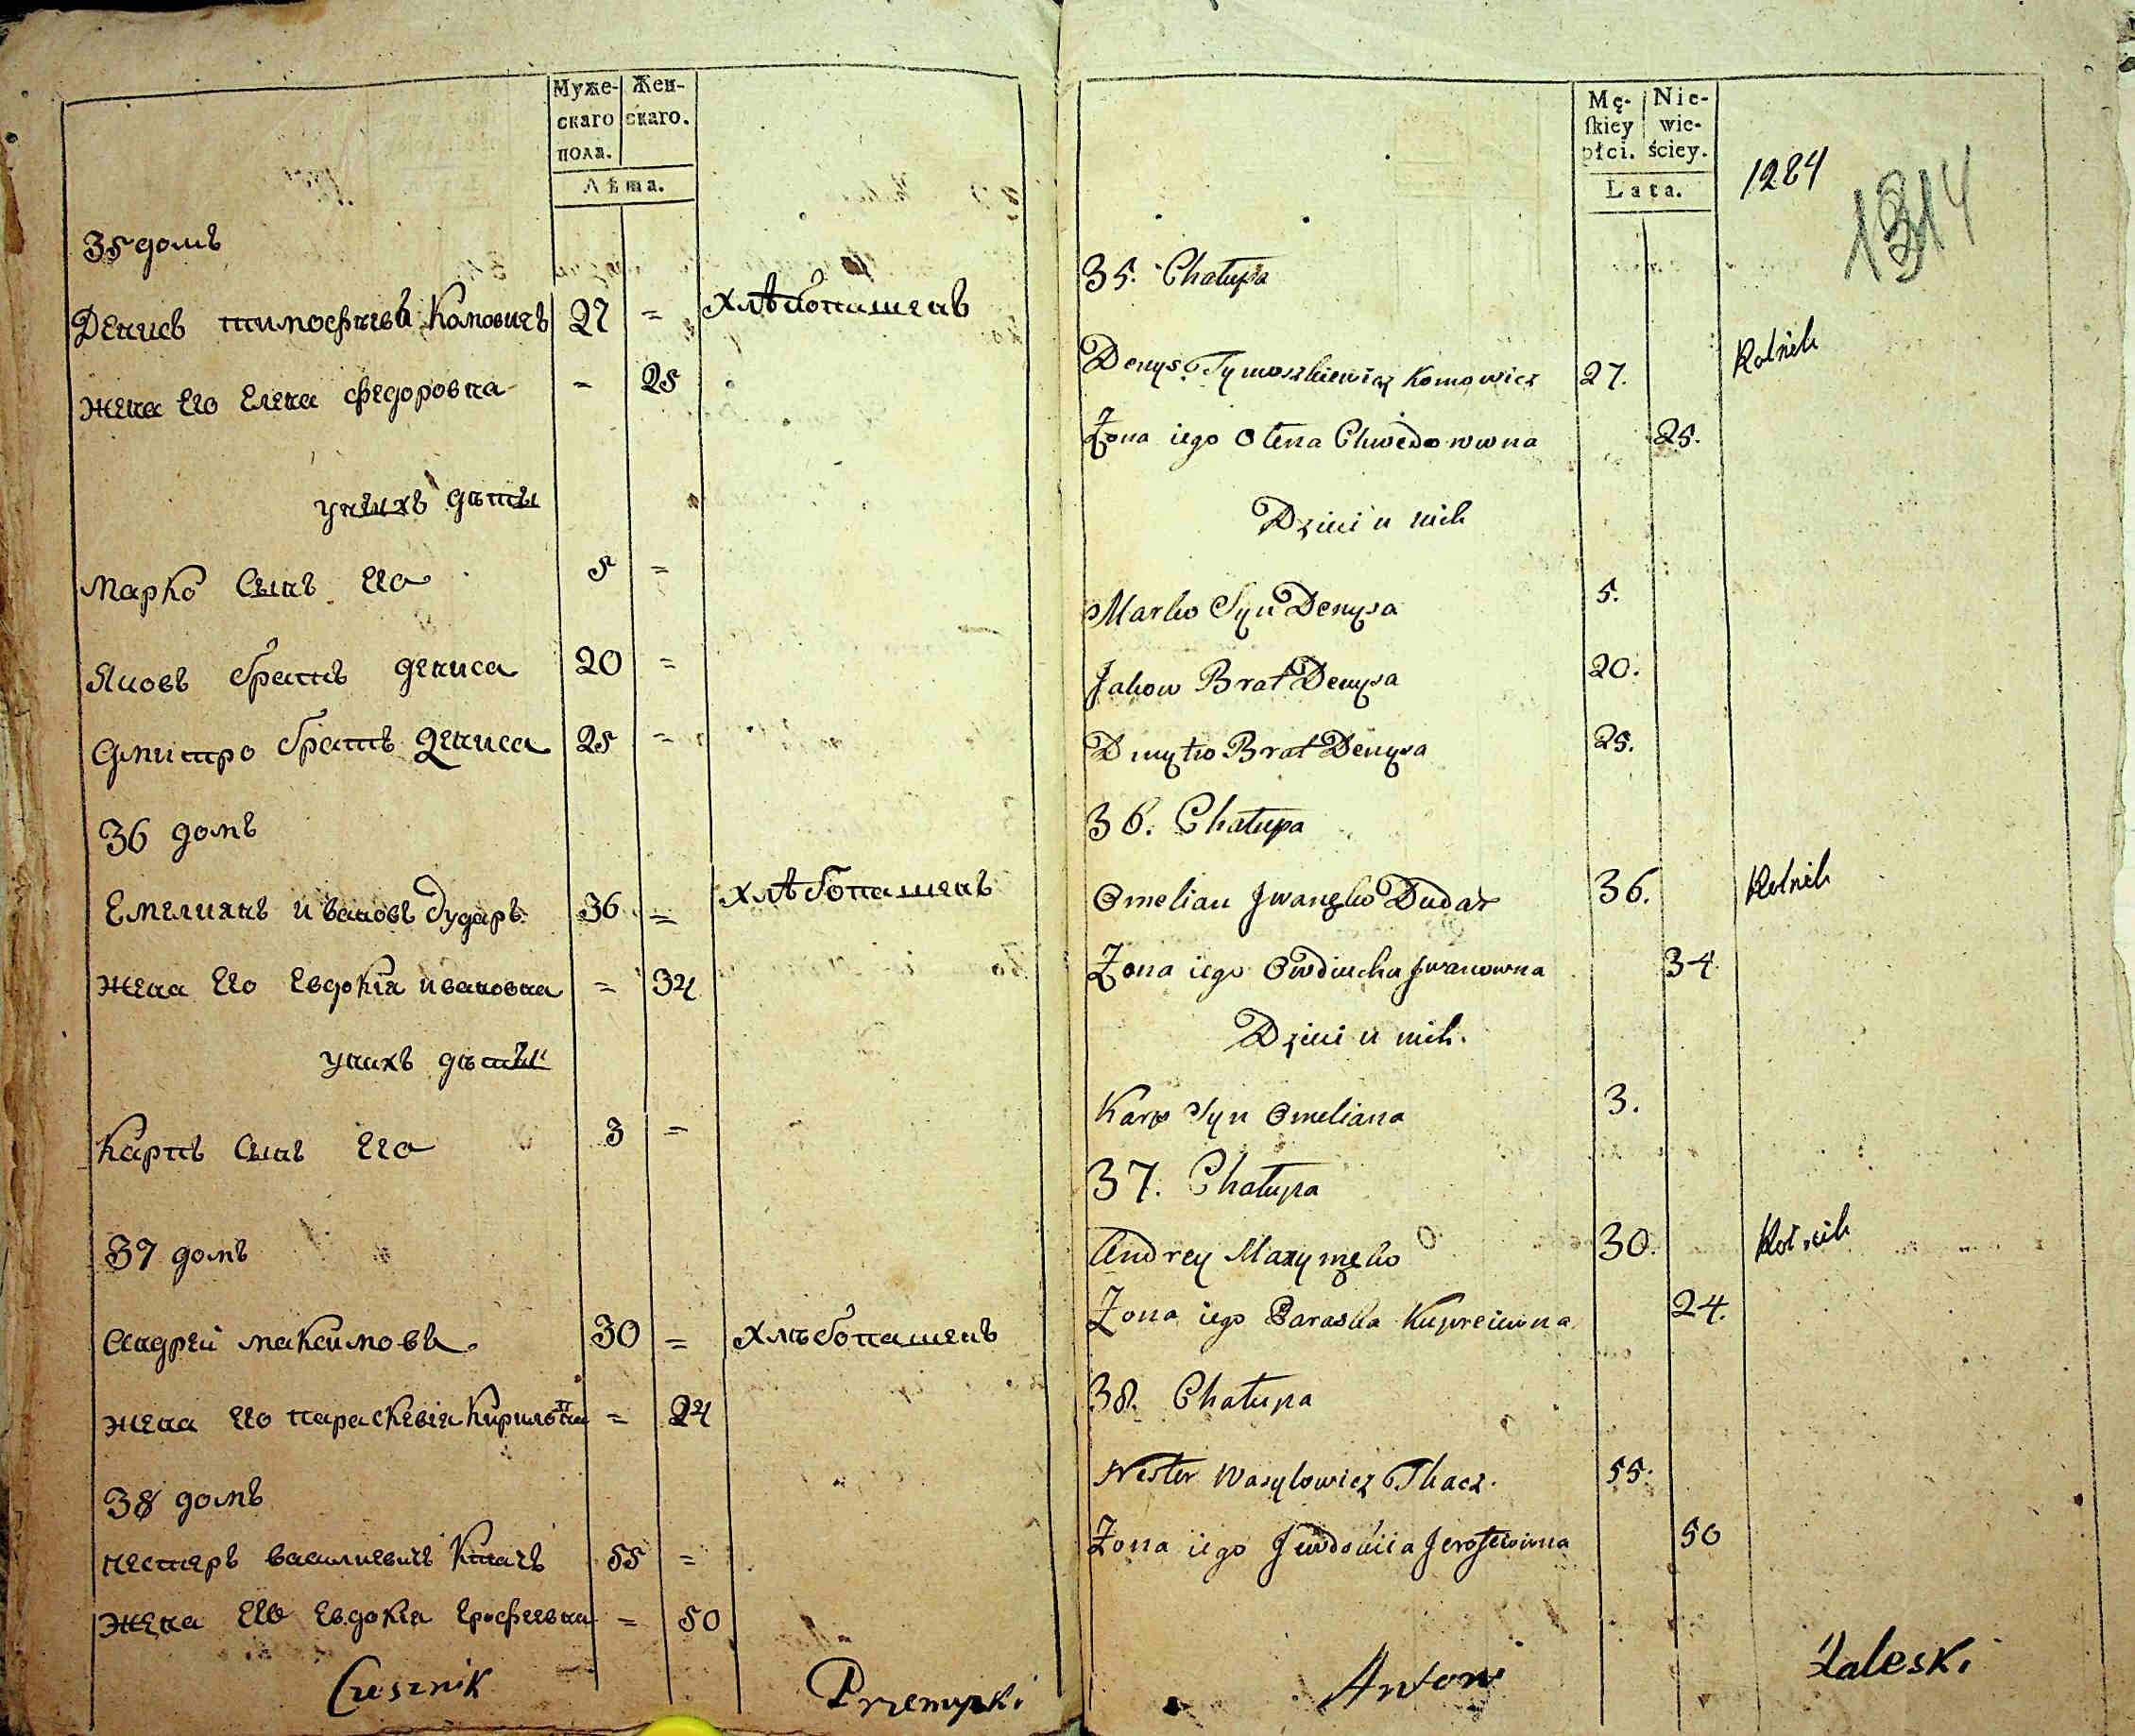 Муже- Жен-
скаго скаго.
пола.
Лѣта.
35 домъ
Денисъ тимофѣевъ Комовичъ 27 = хлѣбопашецъ
жена Его Елена федоровна = 25
унихъ дѣти
Марко Сынъ Его 5 =
Яковъ братъ дениса 20 =
дмитро братъ дениса 25 =
36 домъ
Емелиянъ ивановъ дударъ 36 = хлѣбопашецъ
жена Его Евдокія ивановна = 34
унихъ дѣти
Карпъ Сынъ Его 3 =
37 домъ
андрей максимовъ 30 = хлѣбопашецъ
жена Его параскевія = 24
38 домъ
нестеръ василиевичъ Ткачъ 55 =
жена Его Евдокія Ерофеевна = 50
Czesznik Przemyski
Mę- Nie-
ſkiey wie-
płci. ściey.
Lata.
1284
1314
35. Chałupa
Denys Tymoszkiewicz Komowicz 27. Rolnik
Żona iego Olena Chwedorowna 25.
Dzieci u nich
Marko Syn Denysa 5.
Jakow Brat Denysa 20.
Dmytro Brat Denysa 25.
36. Chałupa
Omelian Iwanenko Dudar 36. Rolnik
Żona iego Owdiucha Iwanowna 34
Dzieci u nich.
Karp Syn Omeliana 3.
37. Chałupa
Andrey Maxymenko 30. Rolnik
Żona iego Paraska Kupreiowna 24.
38. Chałupa
Nester Wasylowicz Tkacz. 55.
Żona iego Jewdokiia Jerofeiowna 50
Anton Zaleski